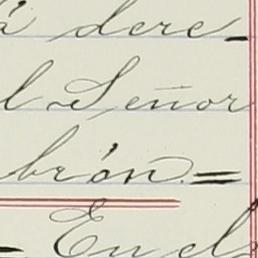 á dere_
l Señor
brón.=
En el